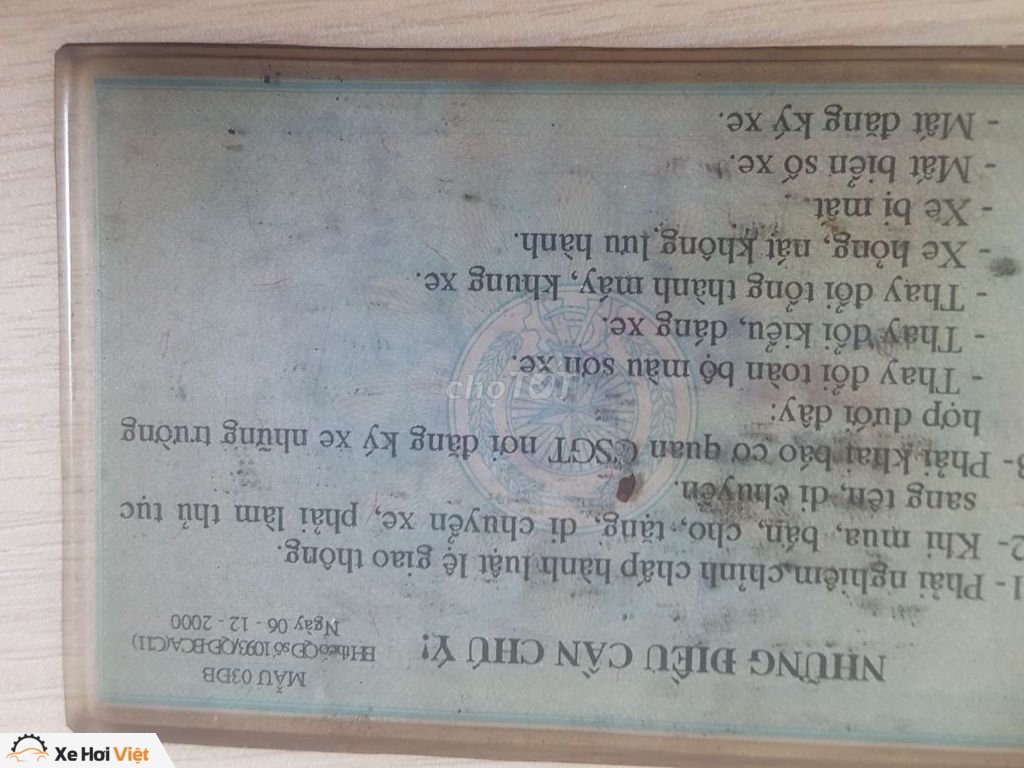 NHỮNG ĐIỀU CẦN CHÚ Ý!
MẪU 03ĐB
BH theo QĐ số 1093/QĐ-BCA(C11)
Ngày 06 - 12 - 2000
1- Phải nghiêm chỉnh chấp hành luật lệ giao thông.
2- Khi mua, bán, cho, tặng, di chuyển xe, phải làm thủ tục
sang tên, di chuyển.
3- Phải khai báo cơ quan CSGT nơi đăng ký xe những trường
hợp dưới đây:
- Thay đổi toàn bộ màu sơn xe.
- Thay đổi kiểu, dáng xe.
- Thay đổi tổng thành máy, khung xe.
- Xe hỏng, nát không lưu hành.
- Xe bị mất.
- Mất biển số xe.
- Mất đăng ký xe.
choTỐT
Xe Hơi Việt